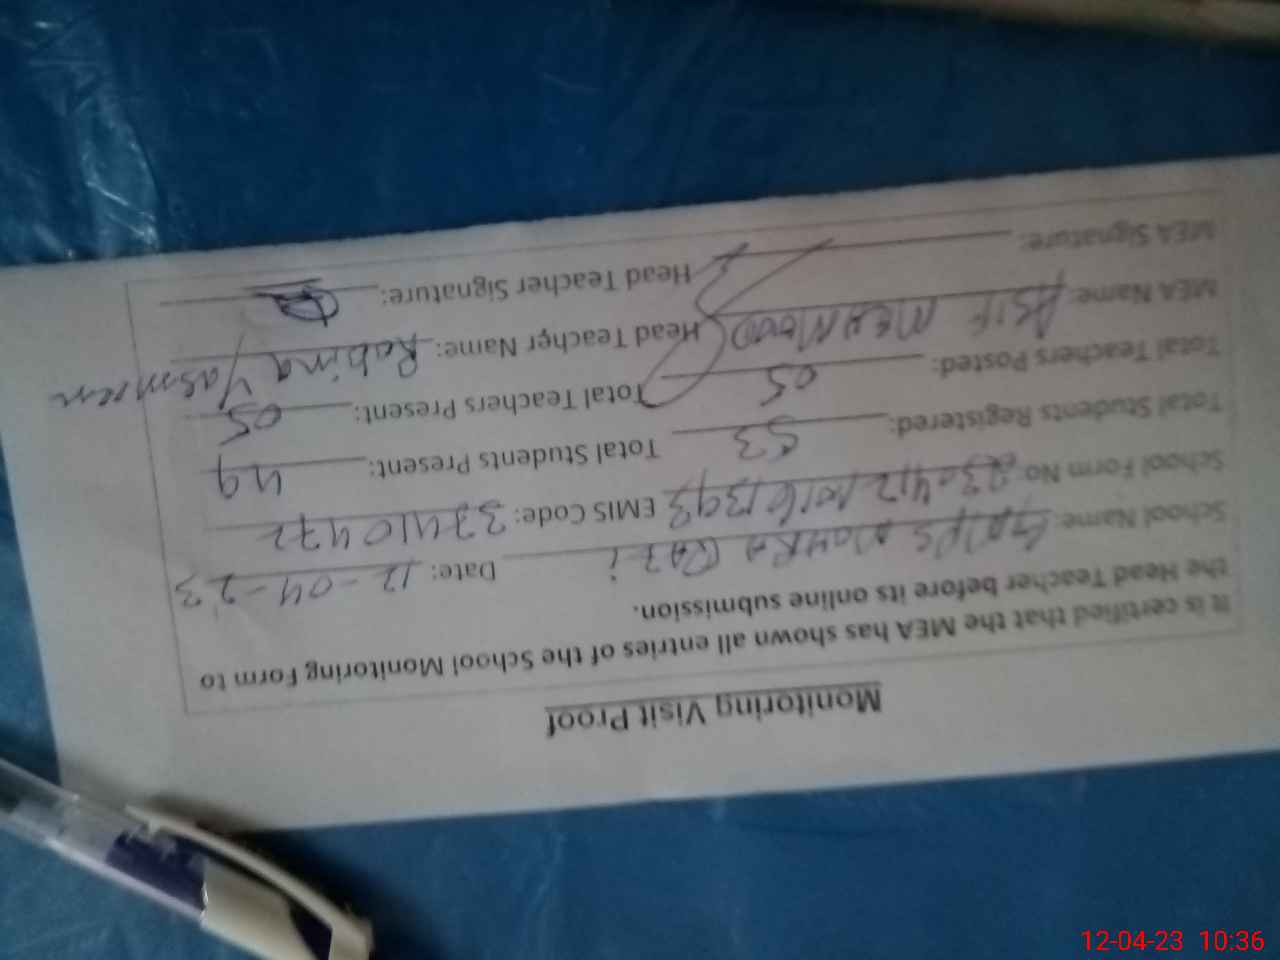 Monitoring Visit Proof
It is certified that the MEA has shown all entries of the School Monitoring Form to
the Head Teacher before its online submission.
School Name: Date: 12-04-23
School Form No: EMIS Code: 37410472
Total Students Registered: 53 Total Students Present: 49
Total Teachers Posted: 05 Total Teachers Present: 05
MEA Name: ASIF MEHMOOD Head Teacher Name: Robina Yasmeen
MEA Signature: Head Teacher Signature:
12-04-23 10:36